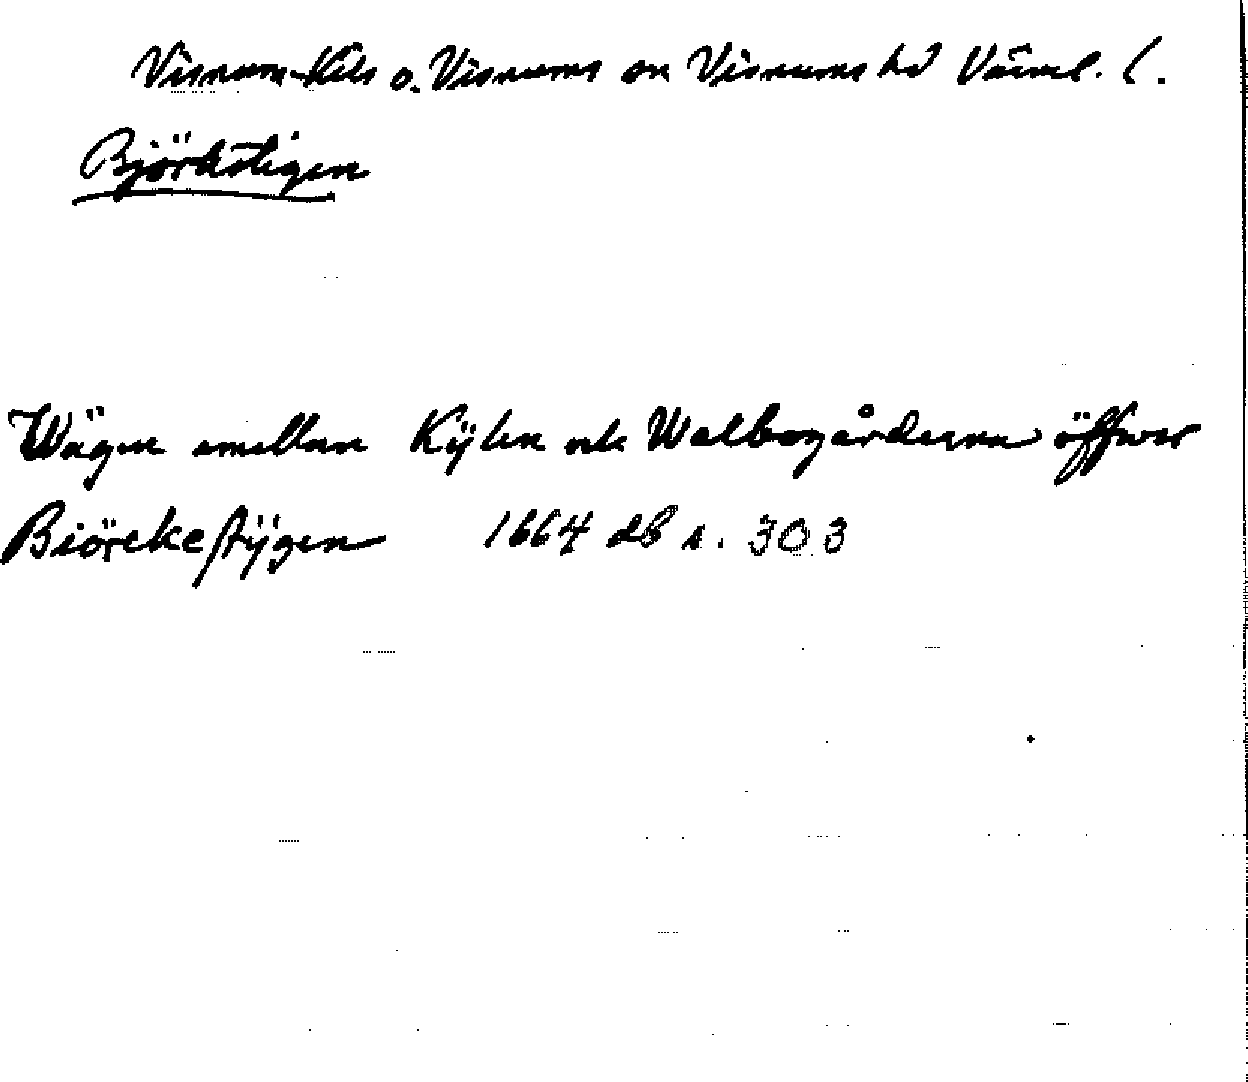 Visnum-Kils o. Visnums sn Visnums hd Värml. l.
Björkstigen
Wägen emellan Kÿlen och Walbogårderna öffwer
Biörckestÿgen 1664 db s. 303